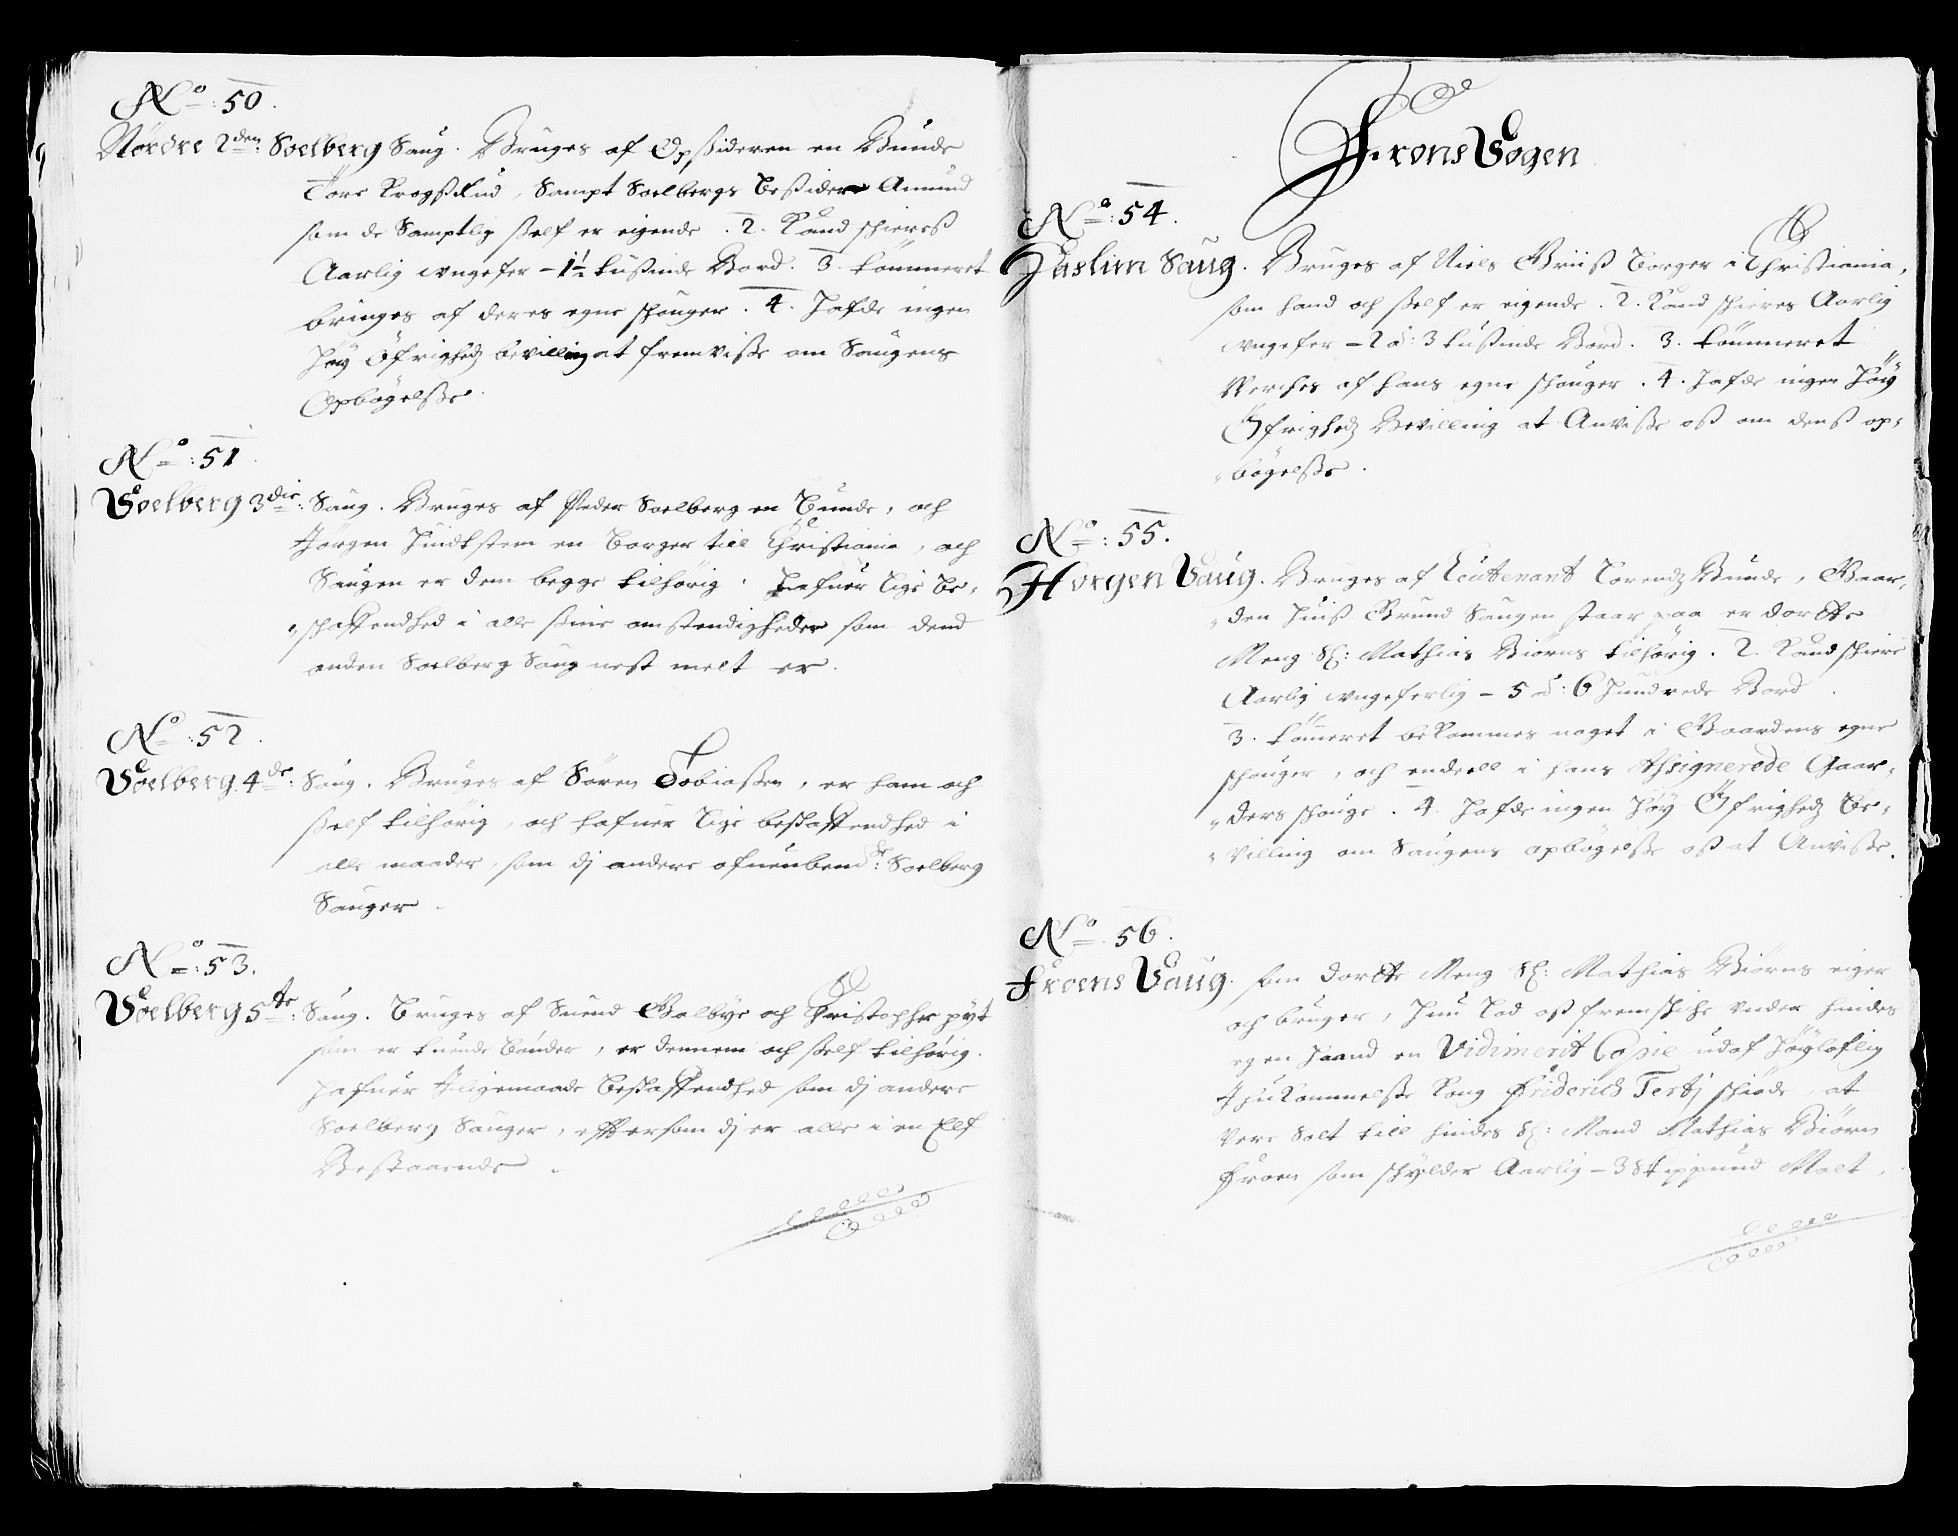 No: 50.
Nordre 2den: Soelberg Saug. Bruges af Opsideren en Bunde
Tore Krogsrud, Sampt Soelbergs Besidere Amund
som de Samptlig self er eigende. 2. Kand schieres
Aarlig ungefer – 1½ tusinde Bord. 3. Tømmeret
bringes af deres egne schouger. 4. Hafde ingen
Høy Øfrigheds bevilling at fremvisse om Saugens
Opbøgelsse.
No: 51.
Soelberg 3die: Saug. Bruges af Peder Soelberg en Bunde, och
Jørgen Hindkstem en Borger till Christiania, och
Saugen er dem begge tilhørig. Hafuer lige be-
schaffendhed i alle sine omstendigheder som dend
anden Soelberg Saug nest melt er.
No: 52.
Soelberg 4de: Saug. Bruges af Søren Tobiassen, er ham och
self tilhørig, och hafuer lige beskaffendhed i
alle maader, som dj andere ofuenbemte: Soelberg
Sauger.
No: 53.
Soelberg 5te: Saug. Bruges af Suend Galbye och Christopher pyt
som er tuende Bønder, er dennem och self tilhørig.
Hafuer Iligemaade Beskaffendhed som dj andere
Soelberg Sauger, effersom dj er alle i en Elf
Bestaaende.
Frons Sogen
No: 54.
Haslum Saug. Bruges af Niels Griis Borger i Christiania,
som hand och self er eigende. 2. Kand schieres Aarlig
ungefer – 2 á: 3 tusinde Bord. 3. Tømmeret
Verches af hans egne schouger. 4. Hafde ingen Høy
Øfrigheds Bevilling at Anvisse os om dens op-
bøgelsse.
No: 55.
Horgen Saug. Bruges af Leutenant Lorends Bunde, Gaar-
den huis Grund Saugen staar paa er dorthe
Meng Sl: Mathias Biørns tilhørig. 2. Kand schiere
Aarlig ungeferlig – 5 á: 6 Hundrede Bord.
3. Tømeret bekommes noget i Gaardens egne
schouger, och endeell i hans Assignerede Gaar-
ders schouge. 4. Hafde ingen Høy Øfrigheds Be-
villing om Saugens opbøgelsse os at Anvisse.
No. 56.
Froens Saug. som dorthe Meng Sl: Mathias Biørns eiger
och bruger, Hun Lod os fremschiche under hindes
egen Haand en Vidimerit Copie udaf Høyloflig
Ihukommelsse Kong Friderich Tertj schiøde, at
Vere Solt till hindes Sl: Mand Mathias Biørn
Froen som schylder Aarlig – 3 Skippund Malt.